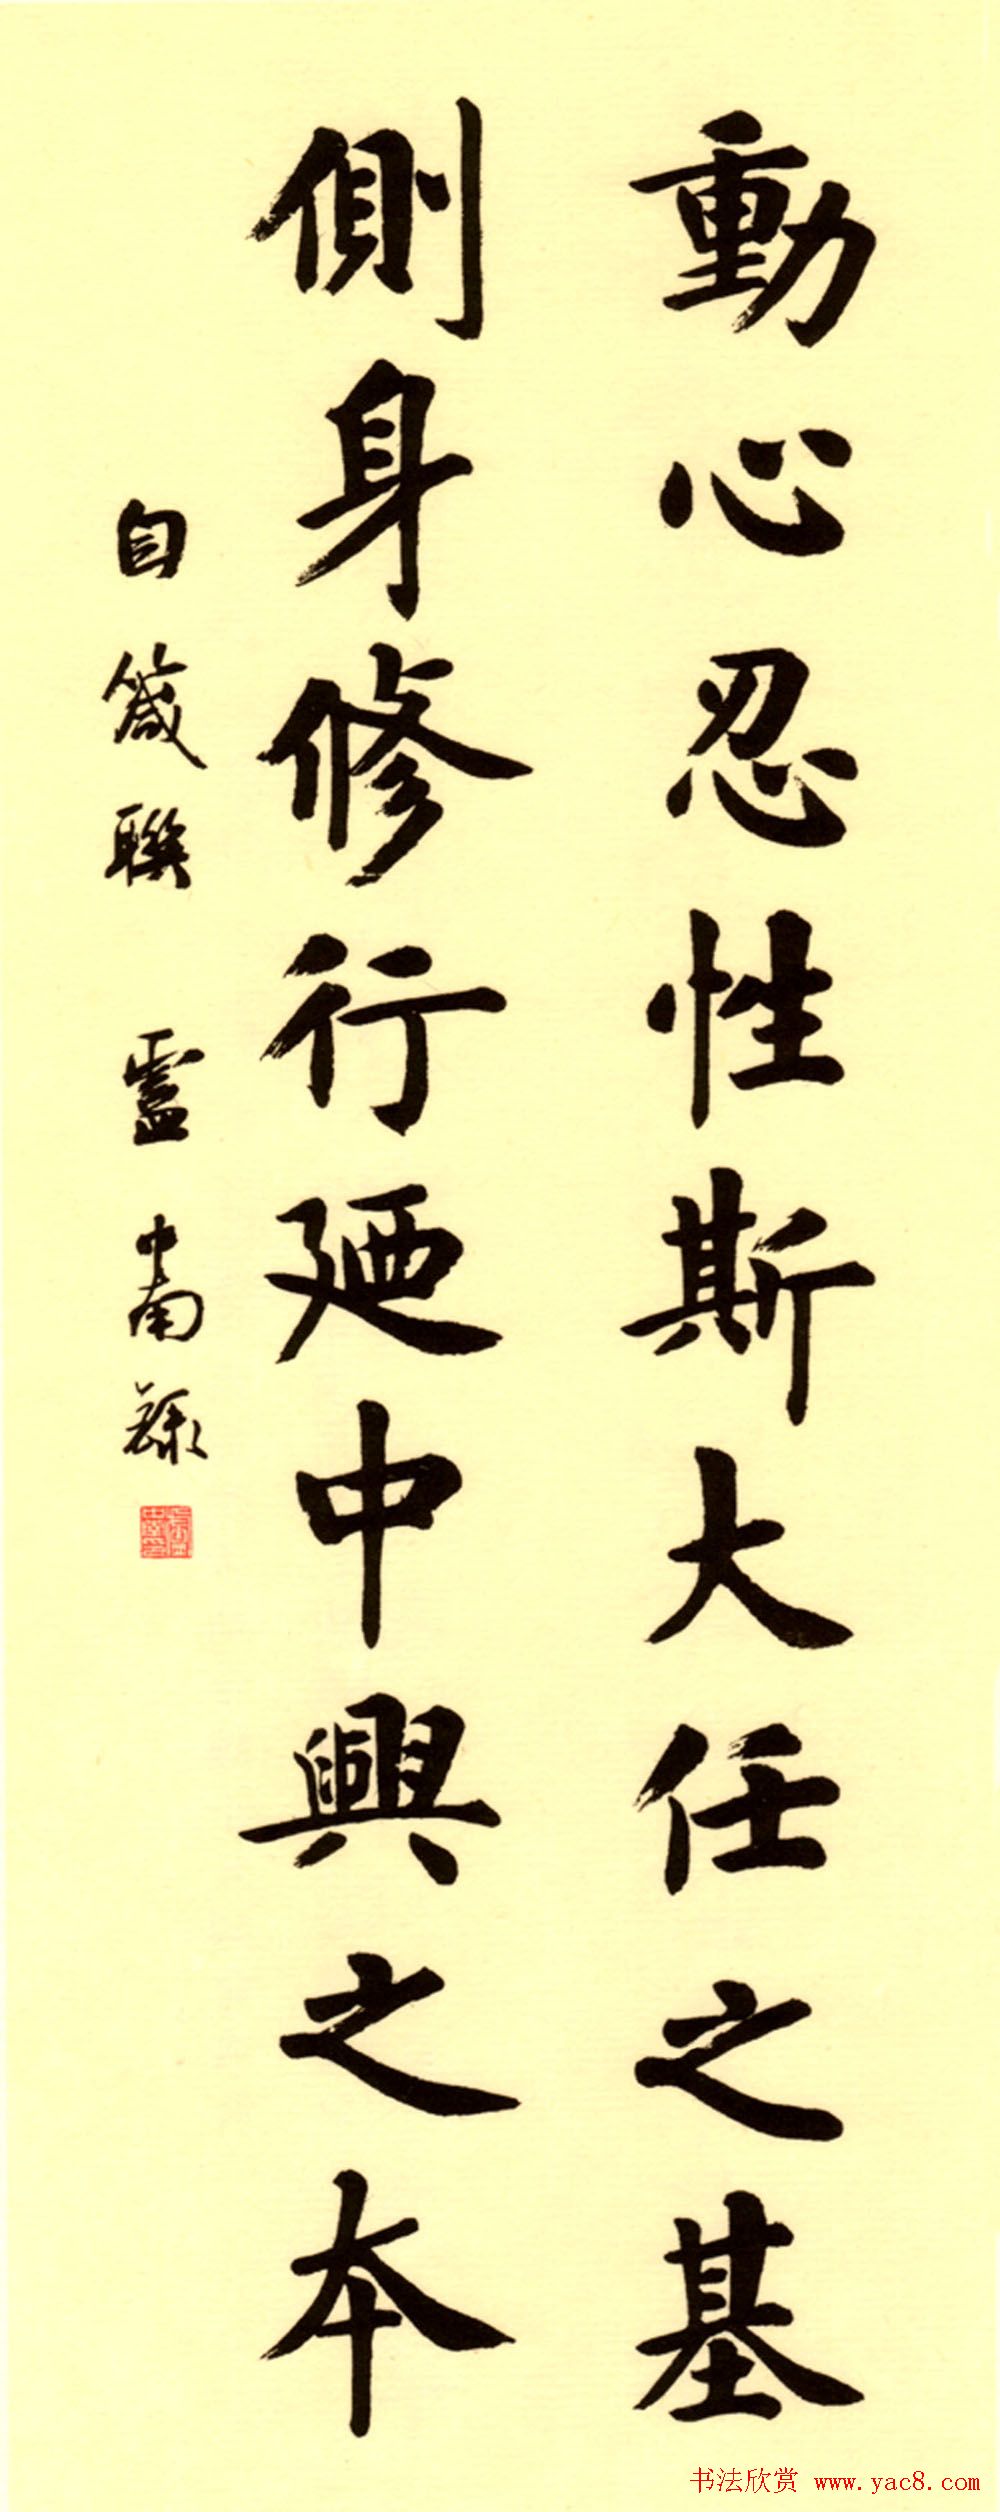 動心忍性斯大任之基
側身修行廼中興之本
自箴聯 盧中南錄
书法欣赏 www.yac8.com